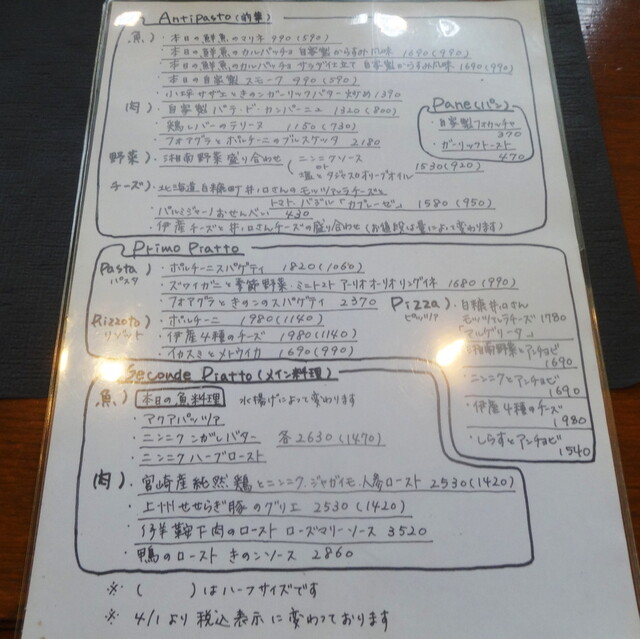 Antipasto(前菜)
魚) ・本日の鮮魚のマリネ 990(590)
・本日の鮮魚のカルパッチョ 自家製からすみ風味 1690(990)
・本日の鮮魚のカルパッチョ サラダ仕立て 自家製からすみ風味 1690(990)
・本日の自家製 スモーク 990(590)
・小坪サザエときのこガーリックバター炒め 1390
肉) ・自家製パテ・ド・カンパーニュ 1320(800)
・鶏レバーのテリーヌ 1150(730)
・フォアグラとポルチーニのブルスケッタ 2180
野菜) ・湘南野菜盛り合わせ (ニンニクソース
or
塩とタジャスカオリーブオイル 1530(920)
チーズ) ・北海道白糠町 井ノ口さんのモッツァレラチーズと
トマト、バジル「カプレーゼ」 1580(950)
・パルミジャーノおせんべい 430
・伊産チーズと井ノ口さんチーズの盛り合わせ(お値段は量によって変わります)
Pane(パン)
・自家製フォカッチャ
370
・ガーリックトースト
470
Primo Piatto
Pasta) ・ポルチーニスパゲティ 1820(1060)
パスタ
・ズワイガニと季節野菜・ミニトマト アーリオオーリオリングイネ 1680(990)
・フォアグラときのこのスパゲティ 2370
Rizzoto) ・ポルチーニ 1980(1140)
リゾット
・伊産4種のチーズ 1980(1140)
・イカスミとメトウイカ 1690(990)
Pizza) ・白糠井ノ口さん
ピッツァ
モッツァレラチーズ 1780
「マルゲリータ」
・湘南野菜とアンチョビ
1690
・ニンニクとアンチョビ
1690
・伊産4種のチーズ
1980
・しらすとアンチョビ
1540
Seconde Piatto(メイン料理)
魚) 本日の魚料理 水揚げによって変わります
・アクアパッツァ
・ニンニク コガシバター 各2630(1470)
・ニンニクハーブロースト
肉) ・宮崎産純然鶏とニンニク、ジャガイモ、人参ロースト 2530(1420)
・上州せせらぎ豚のグリエ 2530(1420)
・仔羊鞍下肉のロースト ローズマリーソース 3520
・鴨のロースト きのこソース 2860
※ ( )はハーフサイズです
※ 4/1より税込表示に変わっております